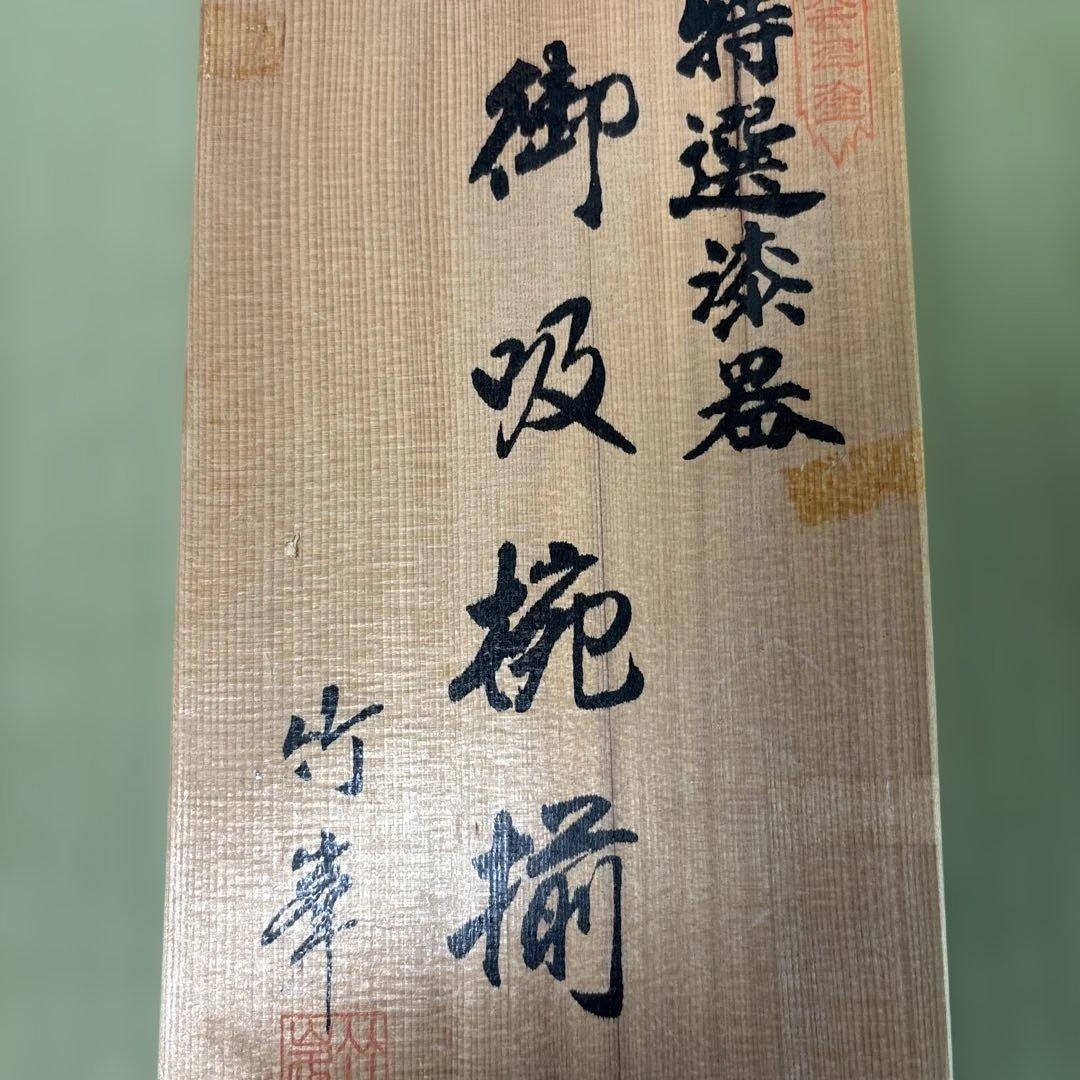 特選漆器
御吸椀揃
竹峯